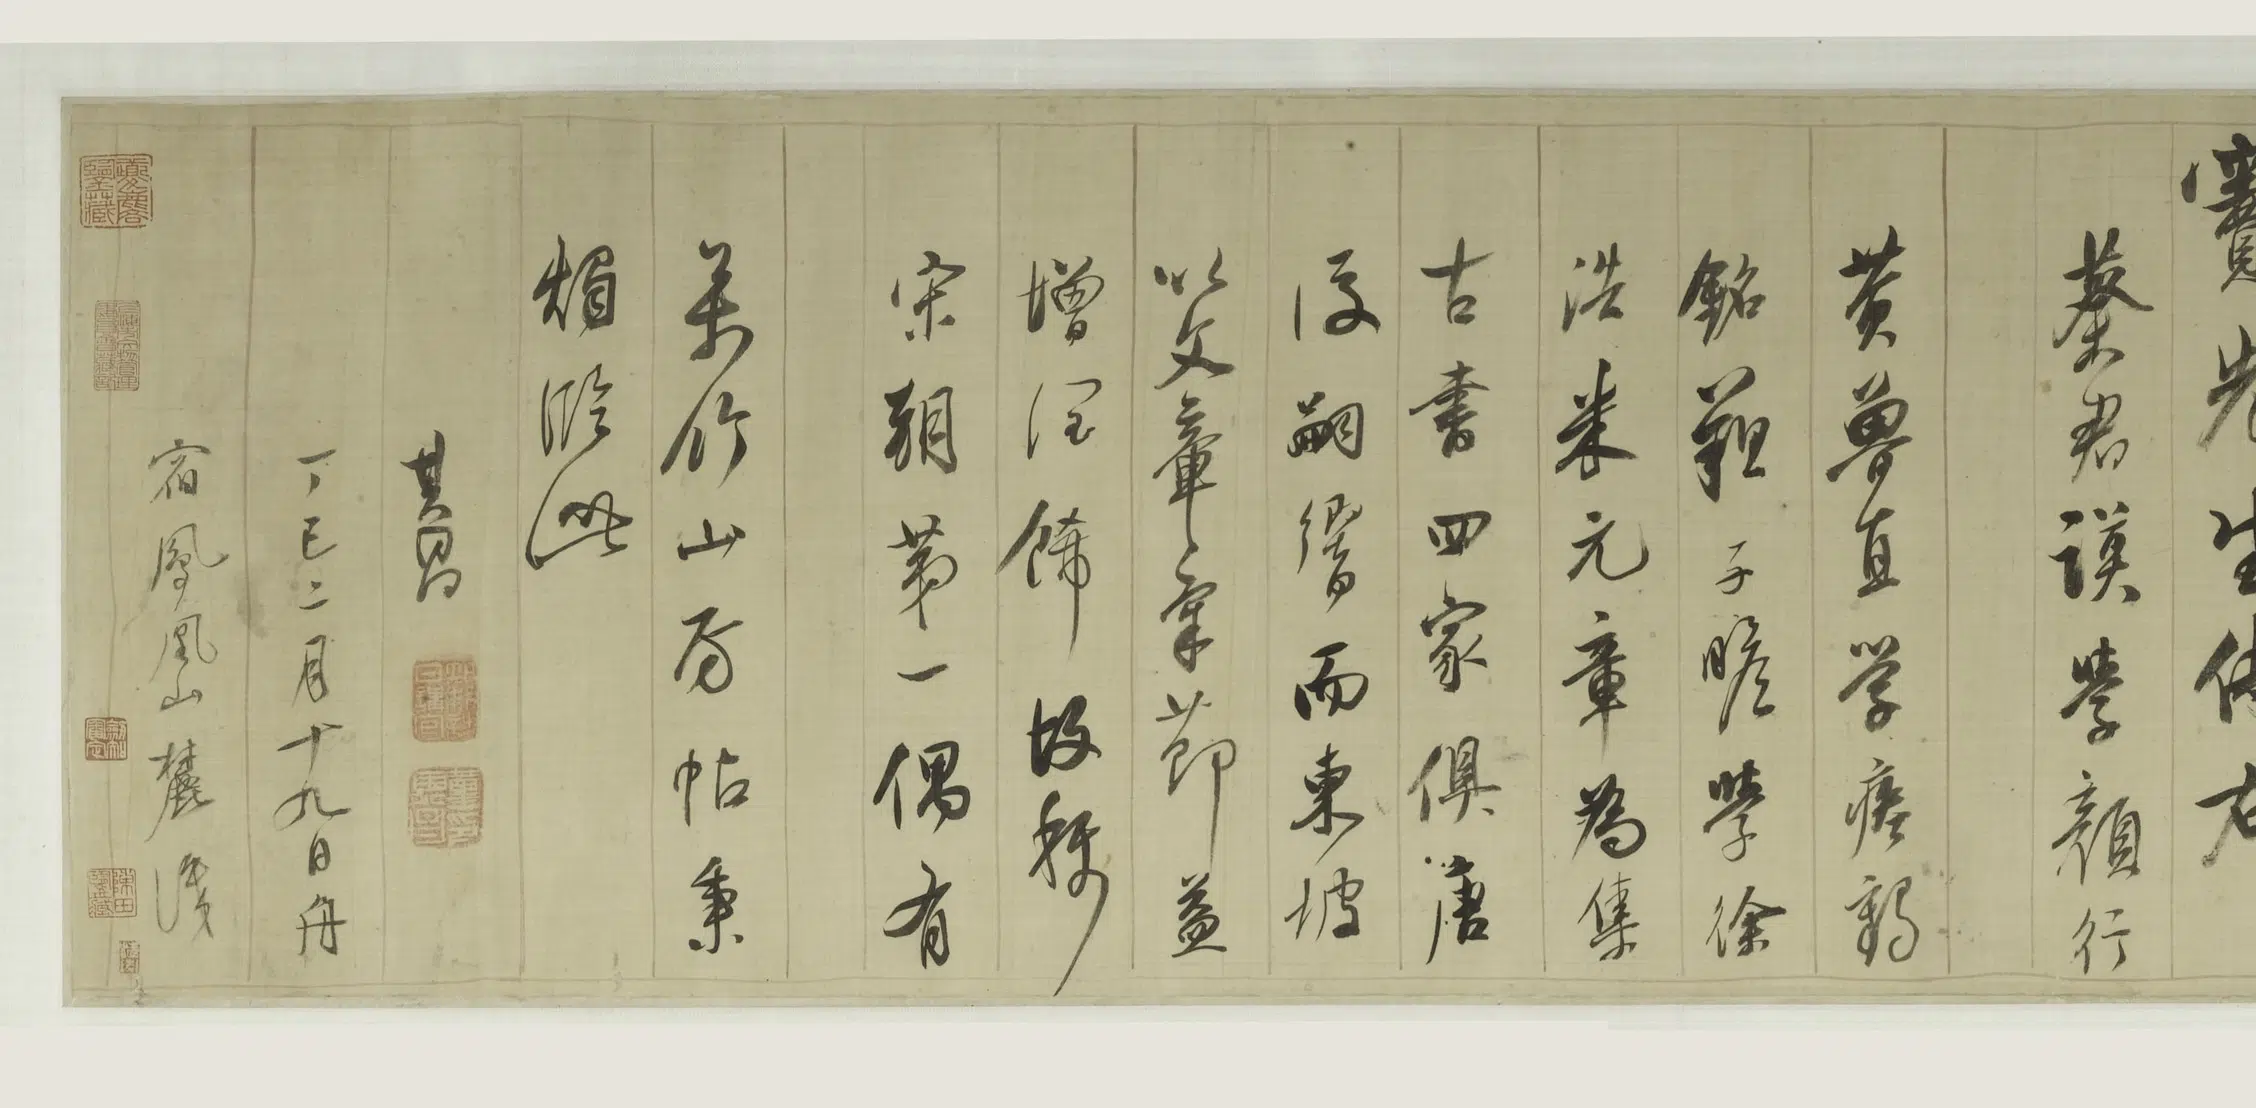 先生
蔡君謨學顏行
黃魯直学瘞鶴
銘蘇子瞻學徐
浩米元章為集
古書四家俱唐
後嗣響而東坡
以文章氣節益
增潤飾故稱
宋朝第一偶有
竹山房帖秉
燭臨此
其昌
丁巳二月十九日舟
宿鳳凰山麓識